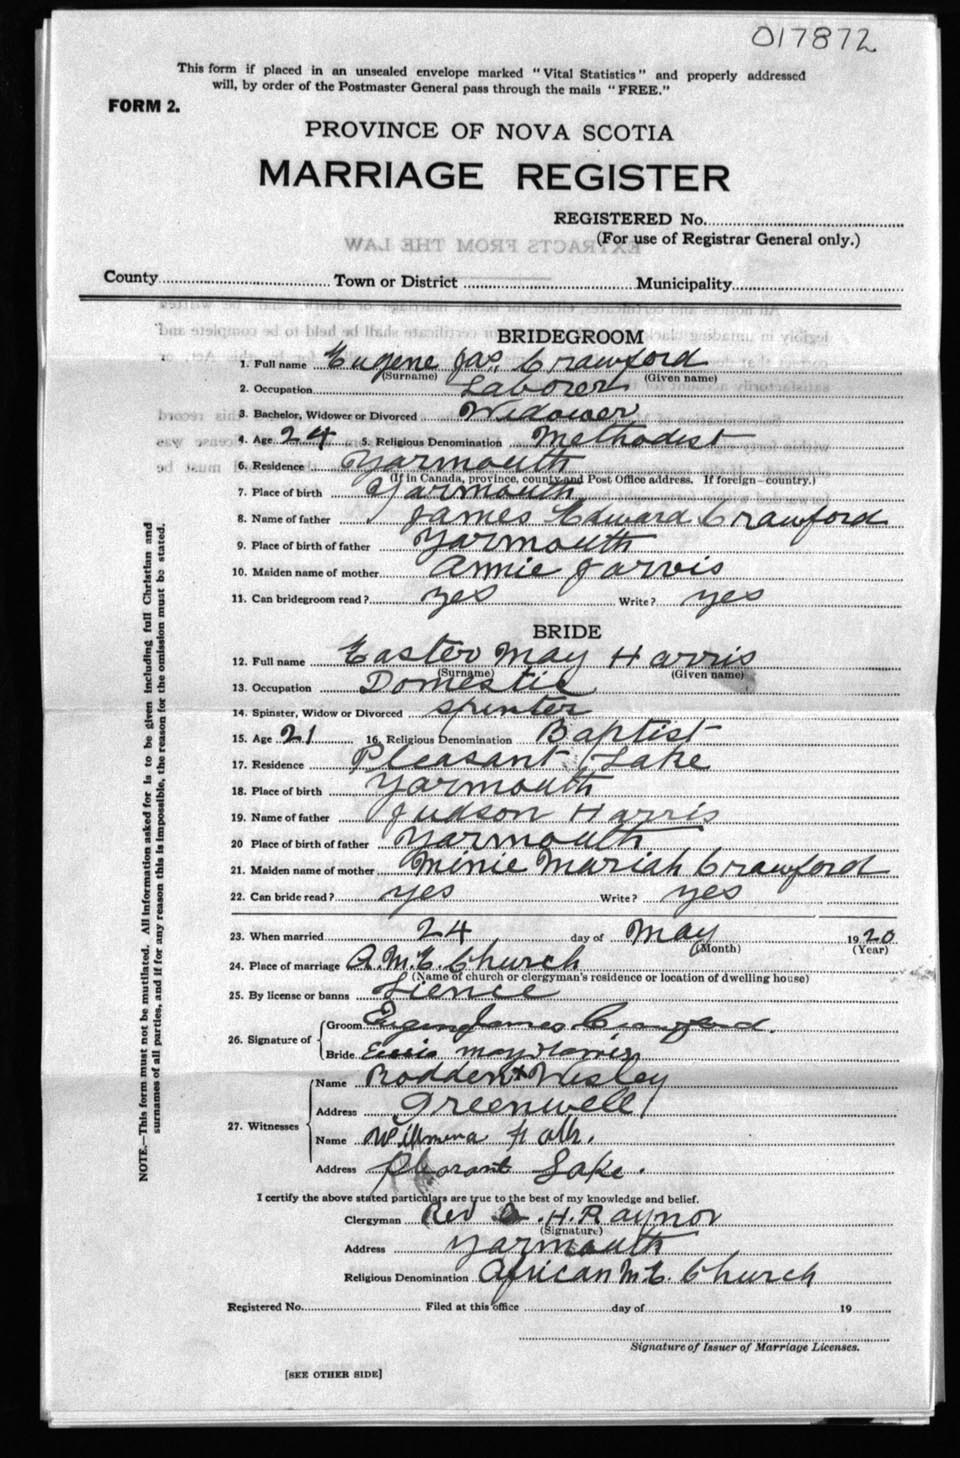 017872
This form if placed in an unsealed envelope marked "Vital Statistics" and properly addressed
will, by order of the Postmaster General pass through the mails "FREE."
FORM 2.
PROVINCE OF NOVA SCOTIA
MARRIAGE REGISTER
REGISTERED No.
(For use of Registrar General only.)
EXTRACTS FROM THE LAW
County Town or District Municipality
BRIDEGROOM
1. Full name Eugene Jas. Crawford
(Surname) (Given name)
2. Occupation Laborer
3. Bachelor, Widower or Divorced Widower
4. Age 24 5. Religious Denomination Methodist
6. Residence Yarmouth
(If in Canada, province, county and Post Office address. If foreign—country.)
7. Place of birth Yarmouth
8. Name of father James Edward Crawford
9. Place of birth of father Yarmouth
10. Maiden name of mother Annie Jarvis
11. Can bridegroom read? yes Write? yes
BRIDE
12. Full name Easter May Harris
(Surname) (Given name)
13. Occupation Domestic
14. Spinster, Widow or Divorced spinter
15. Age 21 16. Religious Denomination Baptist
17. Residence Pleasant Lake
18. Place of birth Yarmouth
19. Name of father Judson Harris
20 Place of birth of father Yarmouth
21. Maiden name of mother Minie Mariah Crawford
22. Can bride read? yes Write? yes
23. When married 24 day of May 1920
(Month) (Year)
24. Place of marriage A.M.E. Church
(Name of church or clergyman's residence or location of dwelling house)
25. By license or banns Lience
26. Signature of Groom James Crawford.
Bride may Harris
27. Witnesses Name Rodden x Wesley
Address Greenwell
Name Willmena
Address Pleasant Lake.
I certify the above stated particulars are true to the best of my knowledge and belief.
Clergyman Rev .H. Raynor
(Signature)
Address Yarmouth
Religious Denomination African M.E. Church
Registered No. Filed at this office day of 19
Signature of Issuer of Marriage Licenses.
[SEE OTHER SIDE]
NOTE.—This form must not be mutilated. All information asked for is to be given including full Christian and
surnames of all parties, and if for any reason this is impossible, the reason for the omission must be stated.